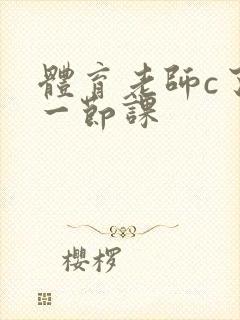 體育老師c了
一節課
櫻桜